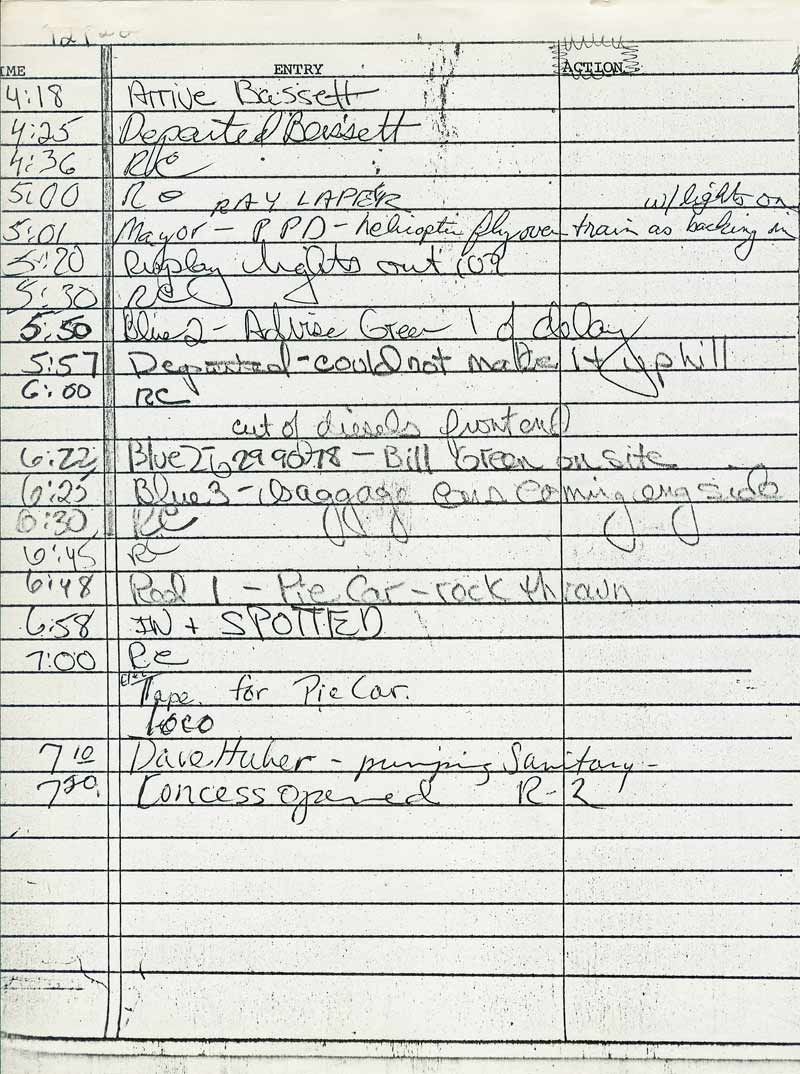 IME ENTRY ACTION
4:18 Arrive Bassett
4:25 Departed Bassett
4:36 RC
5:00 RC RAY LAPETZ w/lights on
5:01 Mayor - PPD - helicopter flyover train as backing in
5:20 Display lights out
5:30 RC
5:50 Blue 2 - Advise Green 1 of delay
5:57 Departed - could not make it uphill
6:00 RC
cut of diesels front end
6:22 Blue 2 - Bill Green on site
6:25 Blue 3 - baggage cars coming eng side
6:30 RC
6:45 RC
6:48 Red 1 - Pie Car - rock thrown
6:58 IN + SPOTTED
7:00 RC
Tape for Pie Car.
Loco
7 10 Dave Huber - pumping Sanitary -
7 20 Concess opened R-2